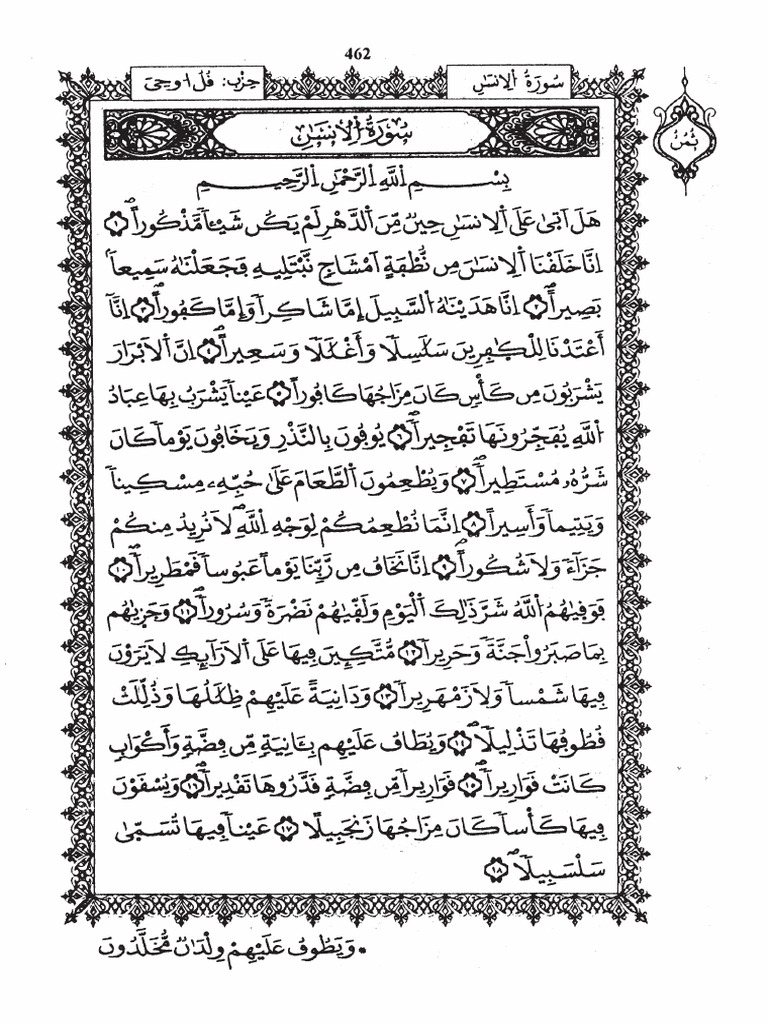 462
سُورَةُ اَ۬لِانسَٰنِ
حِزْب: قُلُ اوحِيَ
ثُمُنْ
سُورَةُ اُ۬لِانسَٰنِ
بِسْمِ اِ۬للَّهِ اِ۬لرَّحْمَٰنِ اِ۬لرَّحِيمِ
هَلَ اَتۭيٰ عَلَى اَ۬لِانسَٰنِ حِينٌ مِّنَ اَ۬لدَّهْرِ لَمْ يَكُن شَيْـٔاً مَّذْكُوراًۖ ١
اِنَّا خَلَقْنَا اَ۬لِانسَٰنَ مِن نُّطْفَةٍ اَمْشَاجٖ نَّبْتَلِيهِ فَجَعَلْنَٰهُ سَمِيعاَۢ
بَصِيراًۖ ٢ اِنَّا هَدَيْنَٰهُ اُ۬لسَّبِيلَ إِمَّا شَاكِراٗ وَإِمَّا كَفُوراًۖ ٣ اِنَّآ
أَعْتَدْنَا لِلْكٰ۪فِرِينَ سَلَٰسِلاٗ وَأَغْلَٰلاٗ وَسَعِيراًۖ ٤ اِنَّ اَ۬لَابْرَارَ
يَشْرَبُونَ مِن كَأْسٖ كَانَ مِزَاجُهَا كَافُوراً ٥ عَيْناٗ يَشْرَبُ بِهَا عِبَادُ
اُ۬للَّهِ يُفَجِّرُونَهَا تَفْجِيراٗۖ ٦ يُوفُونَ بِالنَّذْرِ وَيَخَافُونَ يَوْماٗ كَانَ
شَرُّهُۥ مُسْتَطِيراٗۖ ٧ وَيُطْعِمُونَ اَ۬لطَّعَامَ عَلَىٰ حُبِّهِۦ مِسْكِيناٗ
وَيَتِيماٗ وَأَسِيراًۖ ٨ اِنَّمَا نُطْعِمُكُمْ لِوَجْهِ اِ۬للَّهِۖ لَا نُرِيدُ مِنكُمْ
جَزَآءٗ وَلَا شُكُوراًۖ ٩ اِنَّا نَخَافُ مِن رَّبِّنَا يَوْماً عَبُوساٗ قَمْطَرِيراٗۖ ١٠
فَوَقۭيٰهُمُ اُ۬للَّهُ شَرَّ ذَٰلِكَ اَ۬لْيَوْمِ وَلَقّۭيٰهُمْ نَضْرَةٗ وَسُرُوراٗ ١١ وَجَزۭيٰهُم
بِمَا صَبَرُواْ جَنَّةٗ وَحَرِيراٗ ١٢ مُّتَّكِـِٕينَ فِيهَا عَلَى اَ۬لَارَآئِكِ لَا يَرَوْنَ
فِيهَا شَمْساٗ وَلَا زَمْهَرِيراٗ ١٣ وَدَانِيَةً عَلَيْهِمْ ظِلَٰلُهَا وَذُلِّلَتْ
قُطُوفُهَا تَذْلِيلاٗۖ ١٤ وَيُطَافُ عَلَيْهِم بِـَٔانِيَةٖ مِّن فِضَّةٖ وَأَكْوَابٖ
كَانَتْ قَوَارِيراٗۖ ١٥ قَوَارِيراٗ مِّن فِضَّةٖ قَدَّرُوهَا تَقْدِيراٗۖ ١٦ وَيُسْقَوْنَ
فِيهَا كَأْساٗ كَانَ مِزَاجُهَا زَنجَبِيلاً ١٧ عَيْناٗ فِيهَا تُسَمّۭيٰ
سَلْسَبِيلاٗۖ ١٨
• وَيَطُوفُ عَلَيْهِمْ وِلْدَٰنٌ مُّخَلَّدُونَ